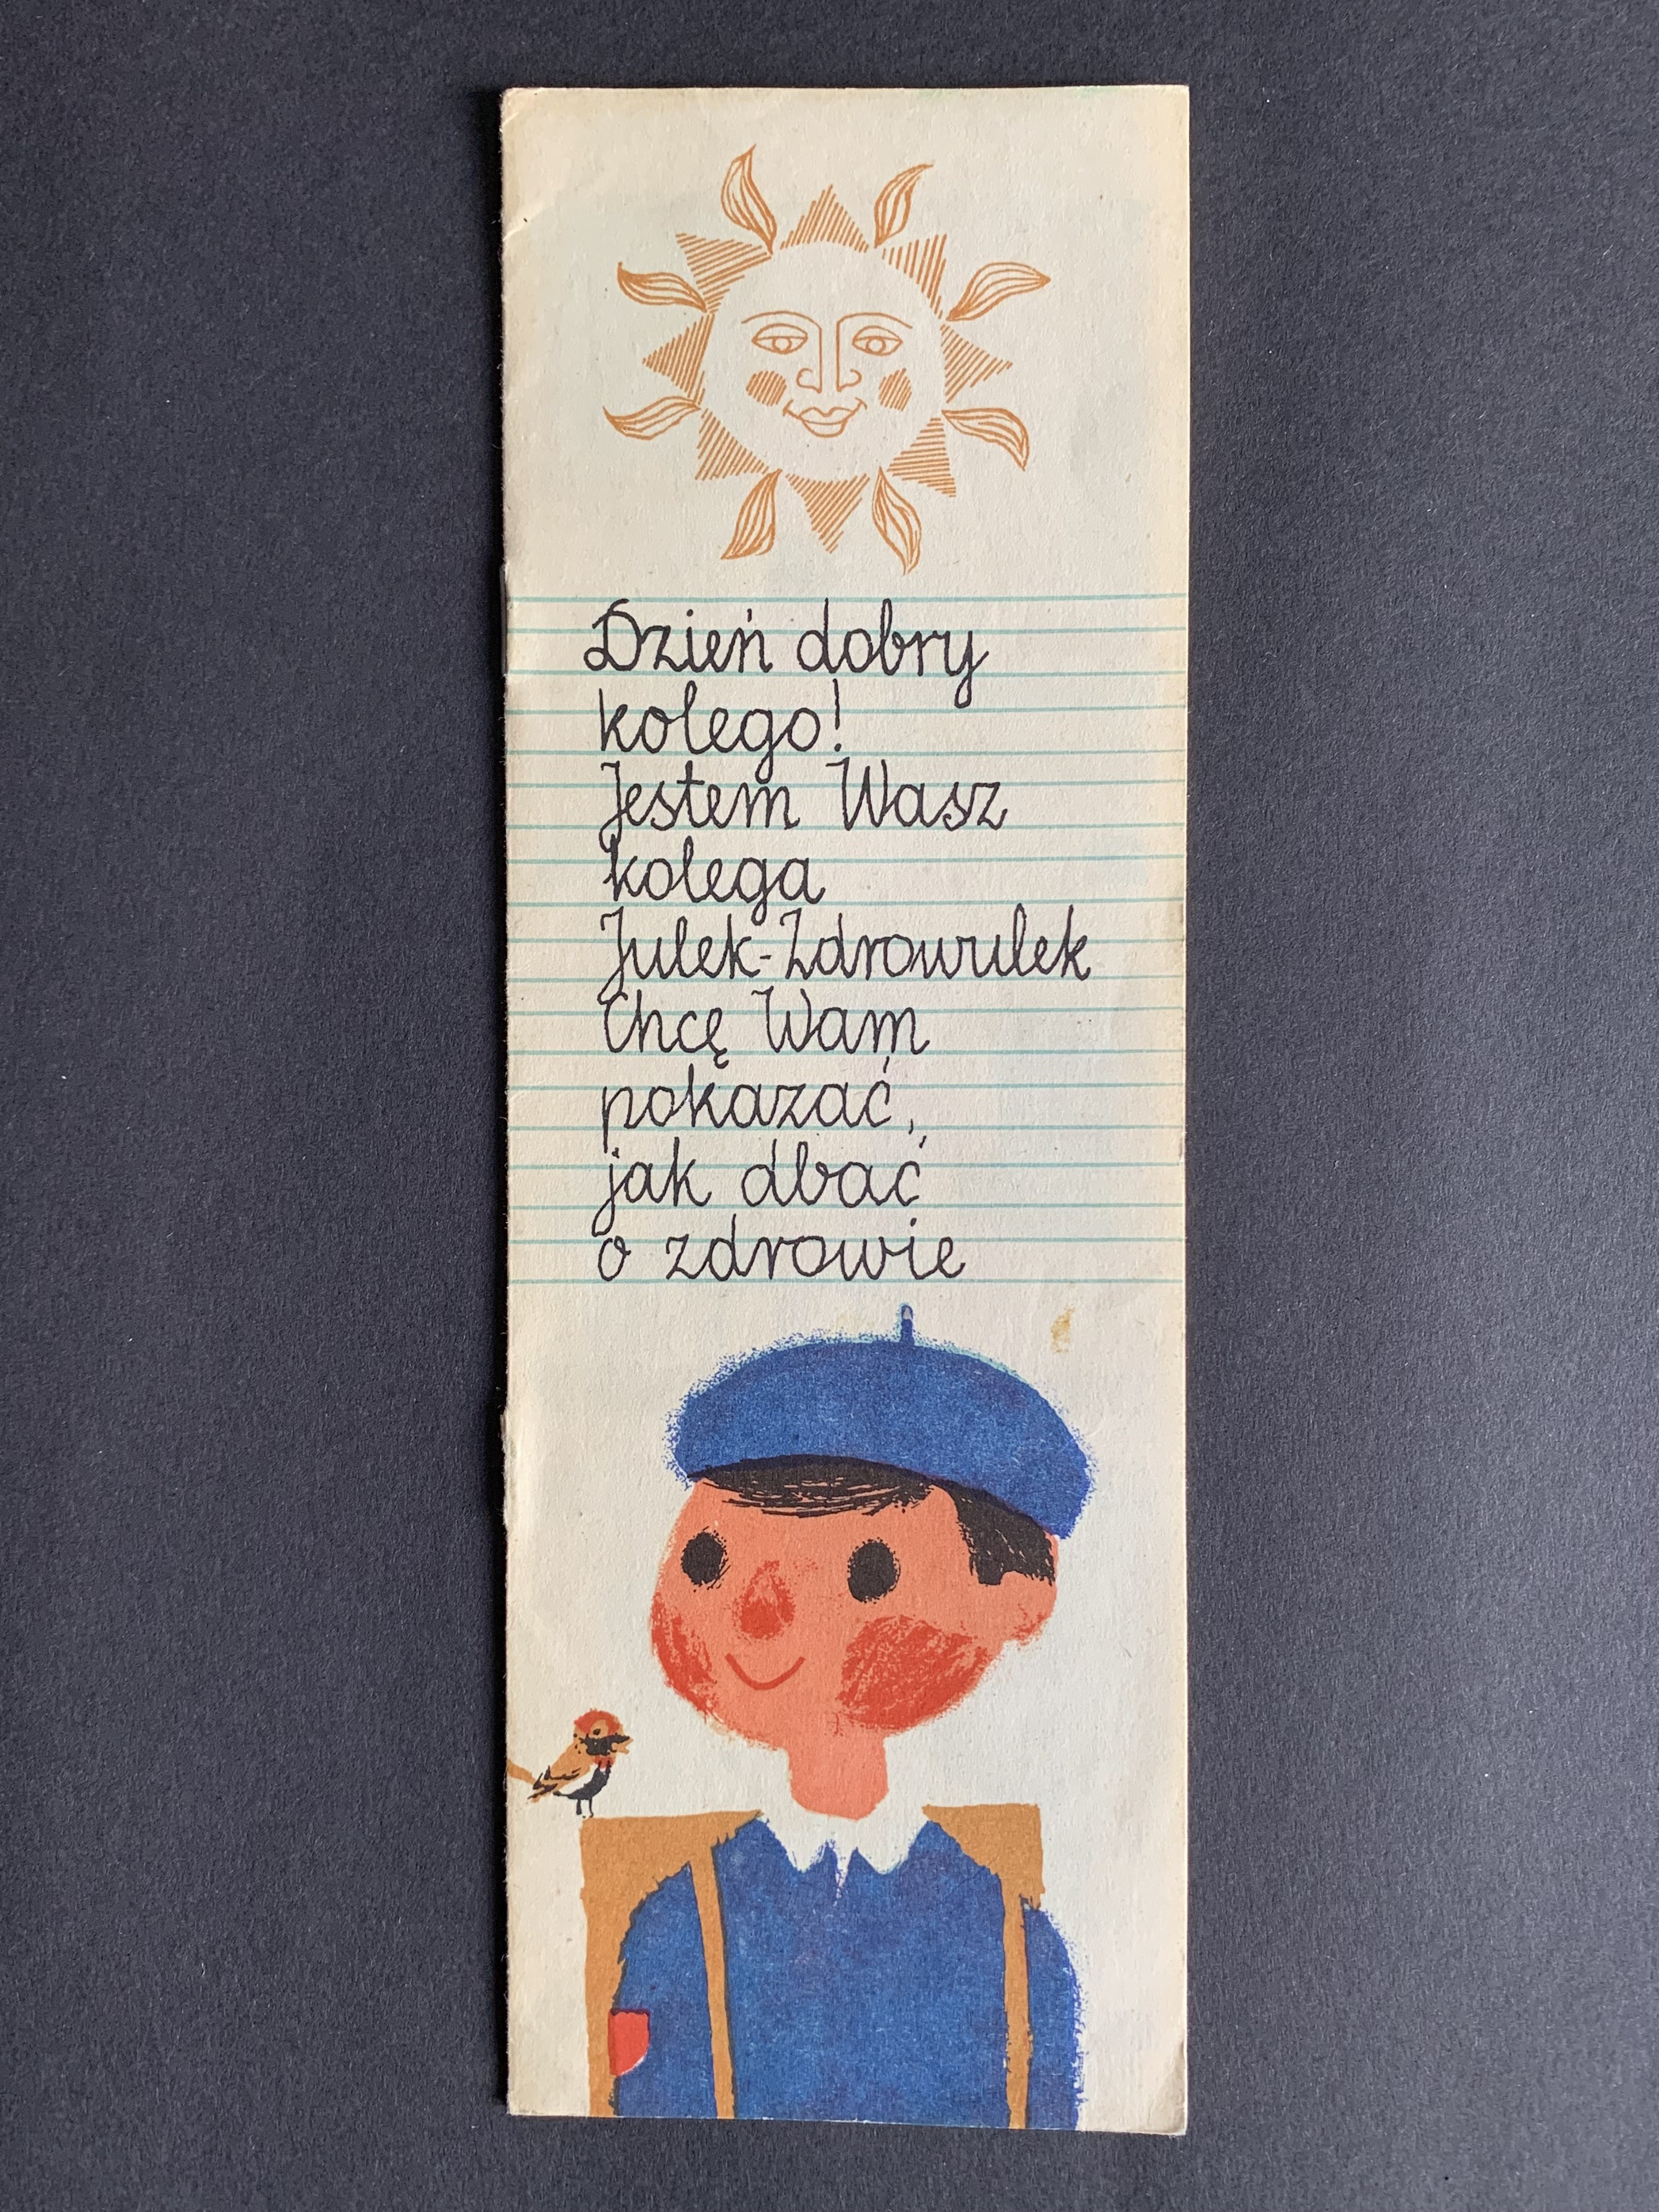 Dzień dobry
kolego!
Jestem Wasz
kolega
Julek-Zdrowulek
Chcę Wam
pokazać,
jak dbać
o zdrowie